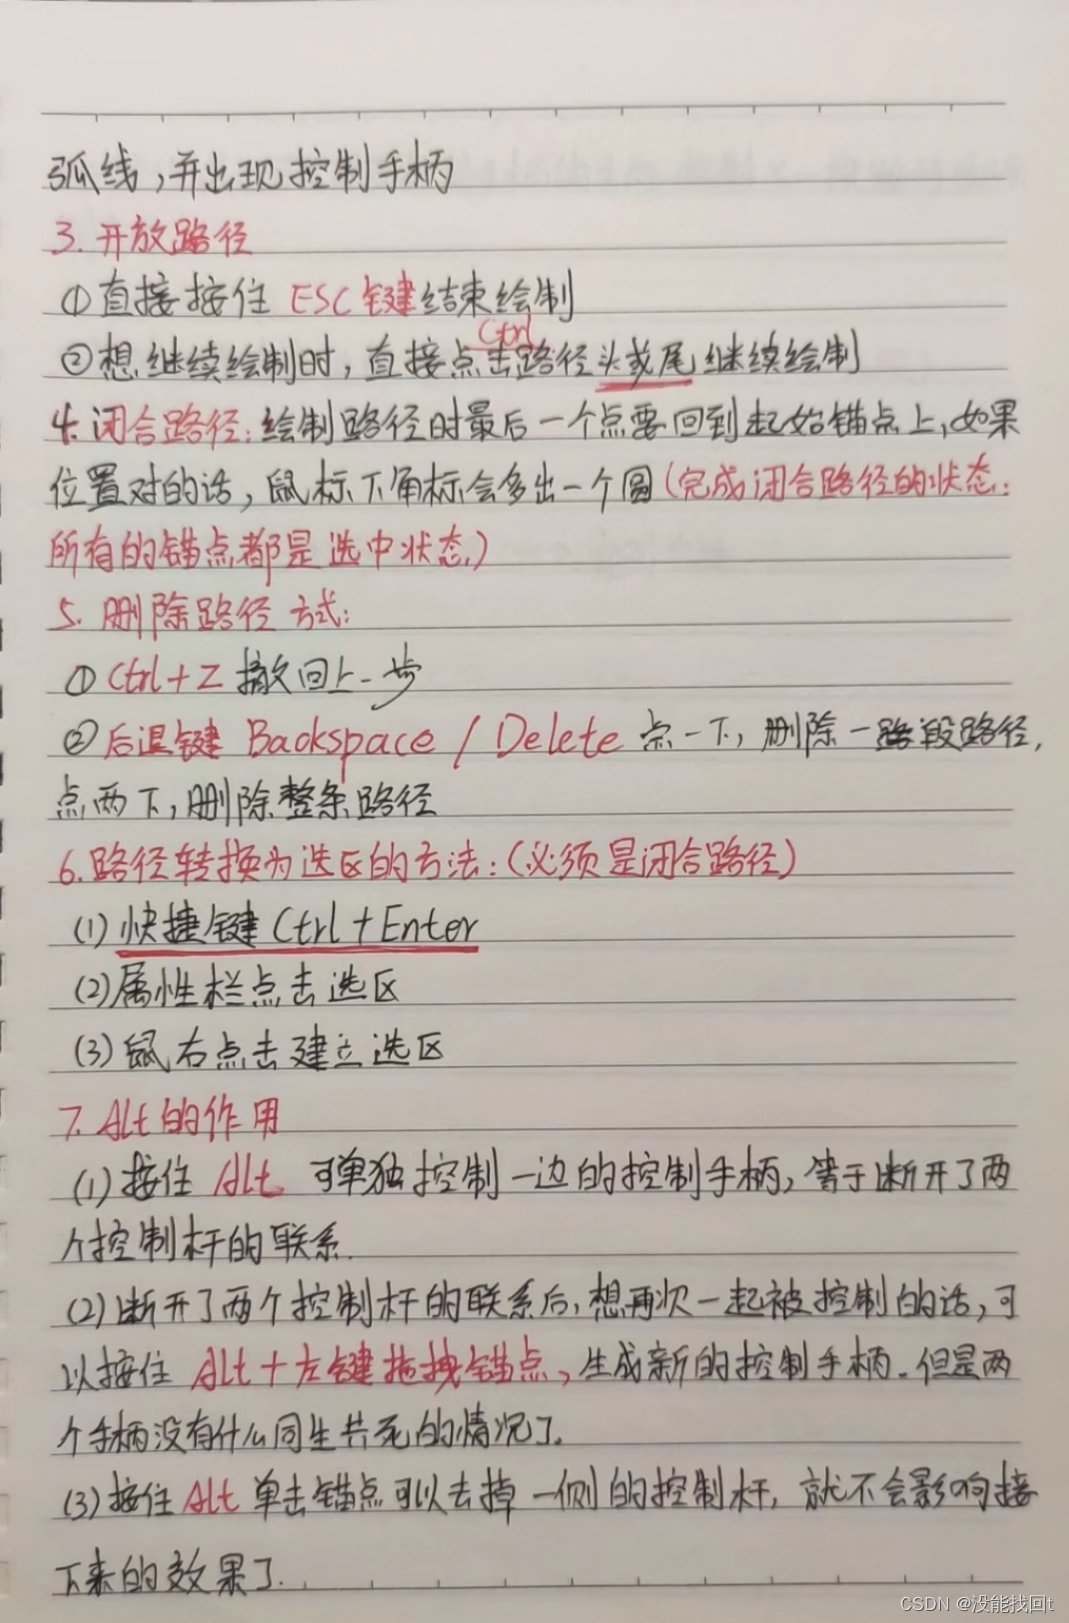 弧线,并出现控制手柄
3. 开放路径
①直接按住 ESC键结束绘制
Ctrl
②想继续绘制时,直接点击路径头或尾继续绘制
4. 闭合路径:绘制路径时最后一个点要回到起始锚点上,如果
位置对的话,鼠标下角标会多出一个圆(完成闭合路径的状态:
所有的锚点都是选中状态)
5. 删除路径方式:
① Ctrl+Z 撤回上一步
②后退键 Backspace / Delete 点一下,删除一段路径,
点两下,删除整条路径
6.路径转换为选区的方法:(必须是闭合路径)
(1)快捷键 Ctrl+Enter
(2)属性栏点击选区
(3)鼠右点击建立选区
7. Alt的作用
(1)按住 Alt 可单独控制一边的控制手柄,等于断开了两
个控制杆的联系.
(2)断开了两个控制杆的联系后,想再次一起被控制的话,可
以按住 Alt+左键拖拽锚点,生成新的控制手柄.但是两
个手柄没有什么同生共死的情况了.
(3)按住Alt单击锚点可以去掉一侧的控制杆,就不会影响接
下来的效果了.
CSDN @没能找回t